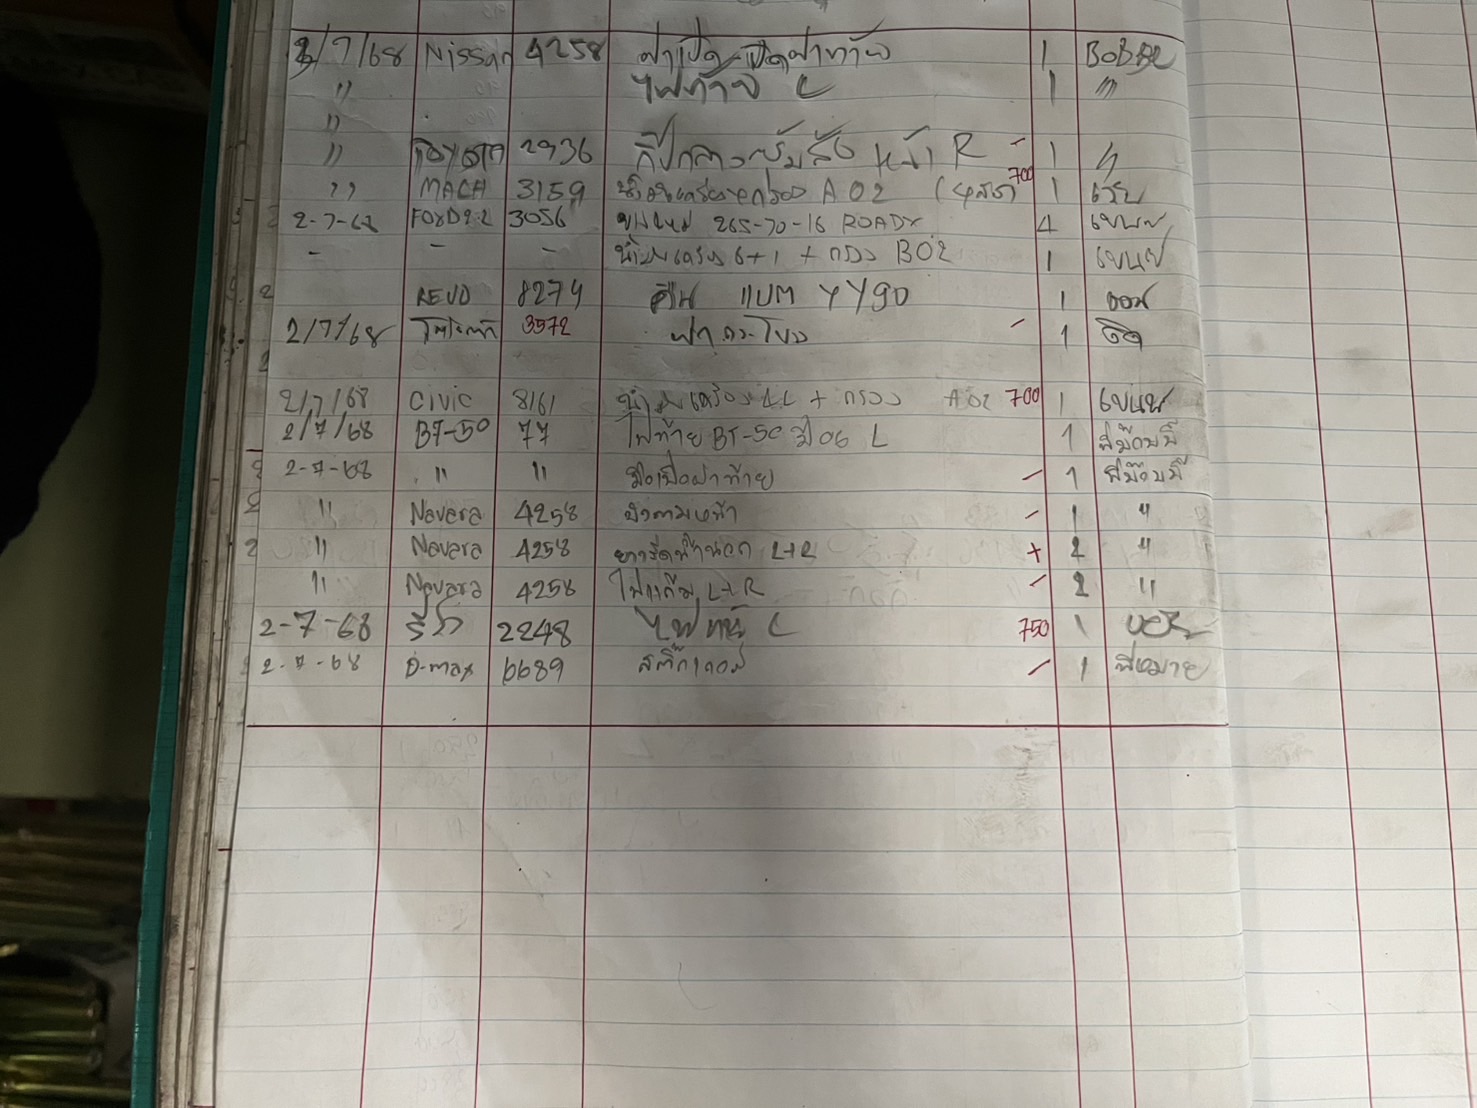 2/7/68 Nissan 4258 ฝาเปิด-ปิดฝาท้าย 1 BOBBE
" ไฟท้าย L 1 "
"
" TOYOTA 2936 หน้า R - 1 "
" MACH 3159 A02 700 1
2-7-68 FORD 2.2 3056 ยางใหม่ 265-70-16 ROADX 4 เขนย
- - - น้ำมันเครื่อง 6+1 + กรอง B02 1 เขนย
REVO 8279 คืน แบต YY90 1 ออม
2/7/68 3572 ฝากระโปรง - 1
2/7/68 CIVIC 8161 น้ำมันเครื่อง 4L + กรอง A02 700 1 เขนย
2/7/68 BT-50 77 ไฟท้าย BT-50 ปี 06 L 1
2-7-68 " " มือเปิดฝาท้าย - 1
" Navara 4258 - 1 "
" Navara 4258 ยางรีดน้ำนอก L+R + 2 "
" Navara 4258 L+R - 2 "
2-7-68 รีโว่ 2248 ไฟหน้า L 750 1
2-7-68 D-max 6689 สติ๊กเกอร์ - 1 พี่หมาย